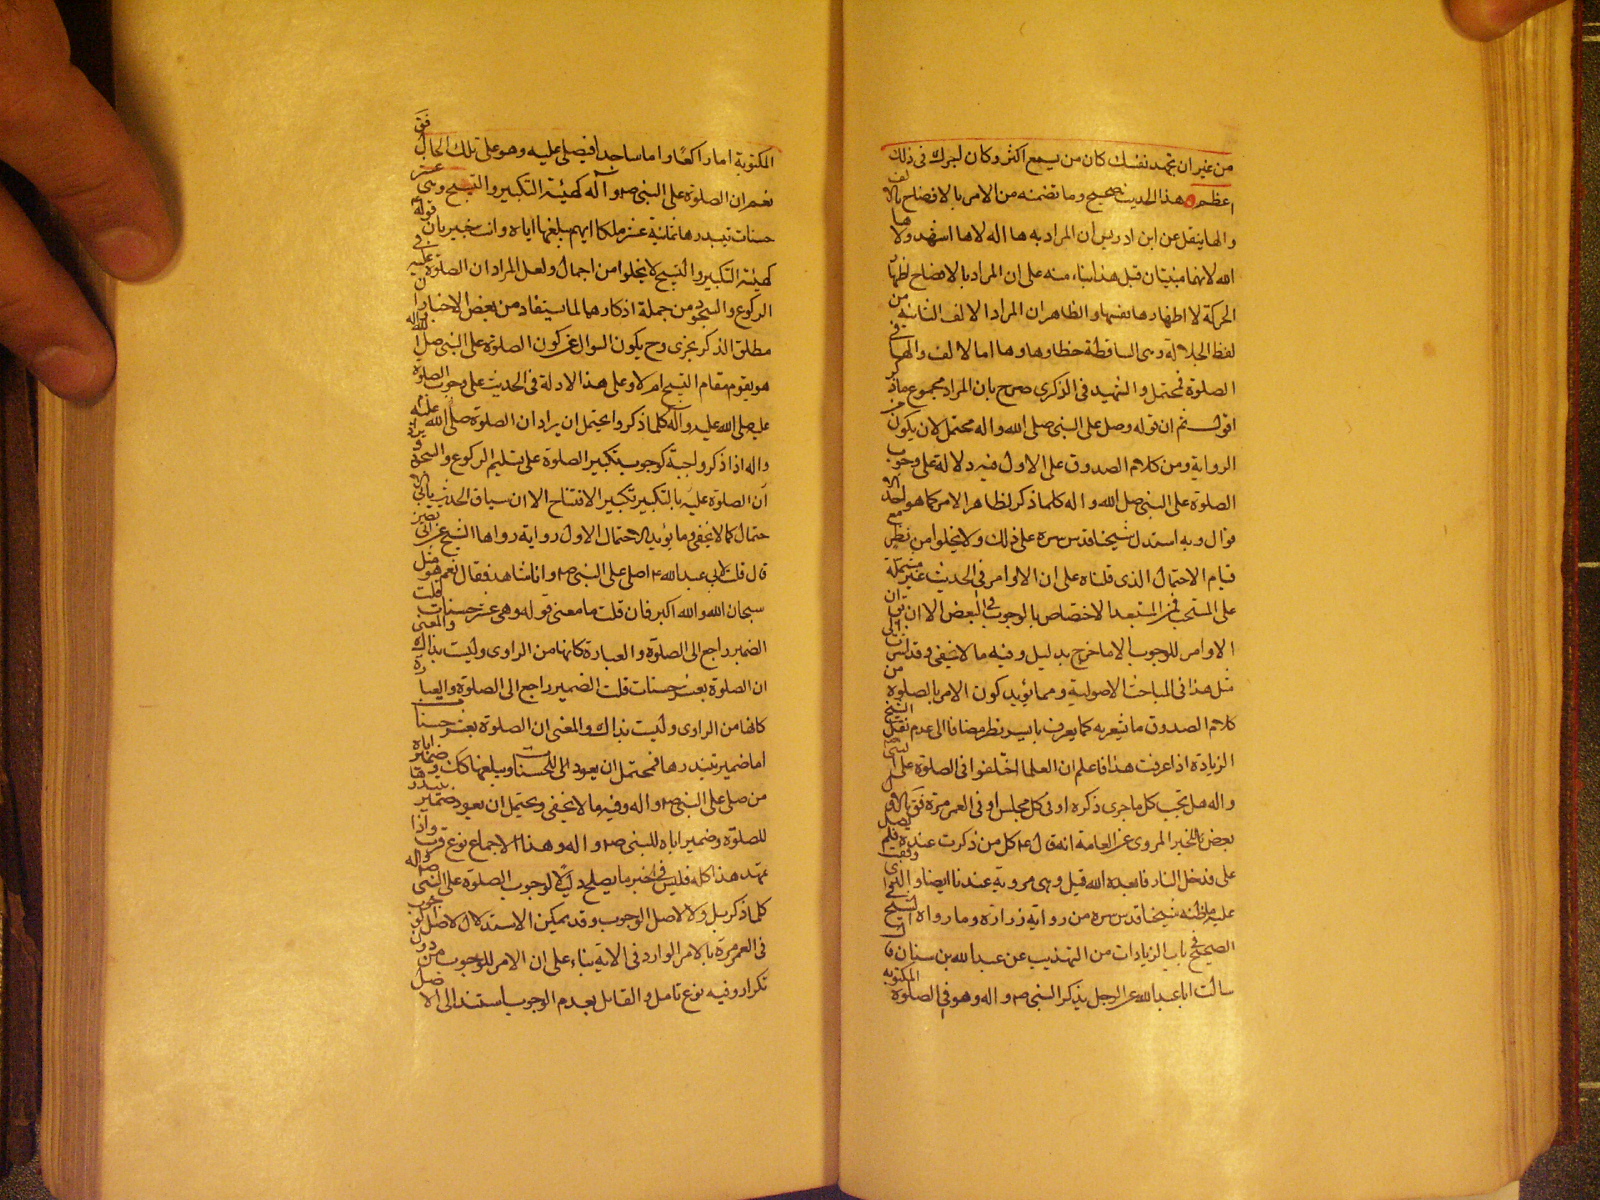 من غير ان تجهد نفسك كان من يسمع اكثر وكان اجرك في ذلك
اعظم هذا الحديث صحيح وما تضمنه من الامر بالافصاح بالالف
والها ينقل عن ابن ادريس ان المراد به ها اله لاها اشهد ولا ها
الله لانهما مبنيتان قبل هذا بناء منه على ان المراد بالافصاح اظهار
الحركة لا اظهارها بنفسها والظاهر ان المراد الالف الثانية من
لفظ الجلالة وهي الساقطة خطا وهاوها اما الالف والها في
الصلوة تحتمل والشهيد في الذكرى صرح بان المراد مجموع
اقول ثم ان قوله وصل على النبي صلى الله واله محتمل لان يكون من
الرواية ومن كلام الصدوق على الاول فيه دلالة على وجوب
الصلوة على النبي صلى الله واله كلما ذكر لظاهر الامر كما هو احد الا
قوال وبه استدل شيخنا قدس سره على ذلك ولا يخلوا من نظر مع
قيام الاحتمال الذي قلناه على ان الاوامر في الحديث غير مشتملة
على المستحب فمن المستبعد الاختصاص بالوجوب في البعض الا ان يق ان
الاوامر للوجوب الا ما خرج بدليل وفيه ما لا يخفى وقد
مثل هذا في المباحث الاصولية ومما يؤيد كون الامر بالصلوة من
كلام الصدوق ما يشعر به كما يعرف بايسر نظر مضافا الى عدم نقل الشيخ
الزيادة اذا عرفت هذا فاعلم ان العلما اختلفوا في الصلوة على النبي ص
واله هل تجب كل ما جرى ذكره او في كل مجلس او في العمر مرة فق بالاول
بعض للخبر المروي عن العامة انه قال ع كل من ذكرت عنده فلم يصل
على فدخل النار فابعده الله قيل وهي مروية عندنا ايضا
عليه ما ظنه شيخنا قدس سره من رواية زرارة وما رواه الشيخ
الصحيح في باب الزيادات من التهذيب عن عبد الله بن سنان قال
سالت ابا عبد الله عن الرجل يذكر النبي ص واله وهو في الصلوة المكتوبة
المكتوبة اما راكعا واما ساجدا فيصلى عليه وهو على تلك الحال فق
نعم ان الصلوة على النبي ص وآله كهيئة التكبير والتسبيح وهي عشر
حسنات تبتدرها ثمانية عشر ملكا ايهم يبلغها اياه وانت خبير بان قوله
كهيئة التكبير والتسبيح لا يخلوا من اجمال ولعل المراد ان الصلوة عليه في
الركوع والسجود من جملة اذكارهما لما يستفاد من بعض الاخبار ان
مطلق الذكر يجزى وح يكون السوال عن كون الصلوة على النبي صلى الله واله
هو يقوم مقام التسبيح ام لا وعلى هذا لا دلة في الحديث على وجوب الصلوة
عليه صلى الله عليه وآله كلما ذكر واحتمل ان يراد ان الصلوة صلى الله عليه
واله اذا ذكر واجبة كوجوب تكبير الصلوة على تسليم الركوع والسجود
ان الصلوة عليه بالتكبير تكبير الافتتاح الا ان سياق الحديث يابى الا
حتمال كما لا يخفى وما يؤيد الاحتمال الاول رواية رواها الشيخ عن ابى بصير
قال قلت لابي عبد الله ع اصلى على النبي ص وانا ساجد فقال نعم هو مثل
سبحان الله والله اكبر فان قلت ما معنى قوله وهي عشر حسنات قلت
الضمير راجع الى الصلوة والعبارة كانها من الراوى وليت بذاك والمعنى
ان الصلوة بعشر حسنات قلت الضمير راجع الى الصلوة والعبارة
كانها من الراوى وليت بذاك والمعنى ان الصلوة بعشر حسنات
اما ضمير تبتدرها فمحتمل ان يعود الى الحسنات ويبلغها كك وضمير اياه
من صلى على النبي ص واله وفيه ما لا يخفى ويحتمل ان يعود ضمير يبتدرها
للصلوة وضمير اياه للنبي ص واله وهنا الاجماع نوع قرب واذا
تمهد هذا كله فليس في الخبر ما يصلح دليلا لوجوب الصلوة على النبي ص واله
كلما ذكر بل ولا لاصل الوجوب وقد يمكن الاستدلال لاصل الوجوب
في العمر مرة بالامر الوارد في الاية بناء على ان الامر للوجوب من دون
تكرار وفيه نوع تامل والقائل بعدم الوجوب استند الى الاصل